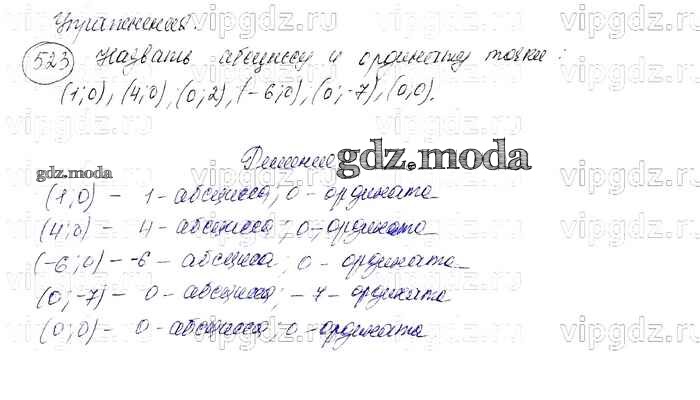 Упражнения.
523 Назвать абсциссу и ординату точки:
(1;0), (4;0), (0;2), (-6;0), (0;-7), (0;0).
Решение
gdz.moda
gdz.moda
(1;0) - 1 - абсцисса; 0 - ордината
(4;0) - 4 - абсцисса; 0 - ордината
(-6;0) - -6 - абсциса; 0 - ордината
(0;-7) - 0 - абсцисса; -7 - ордината
(0;0) - 0 - абсцисса; 0 - ордината
vipgdz.ru vipgdz.ru vipgdz.ru vipgdz.ru